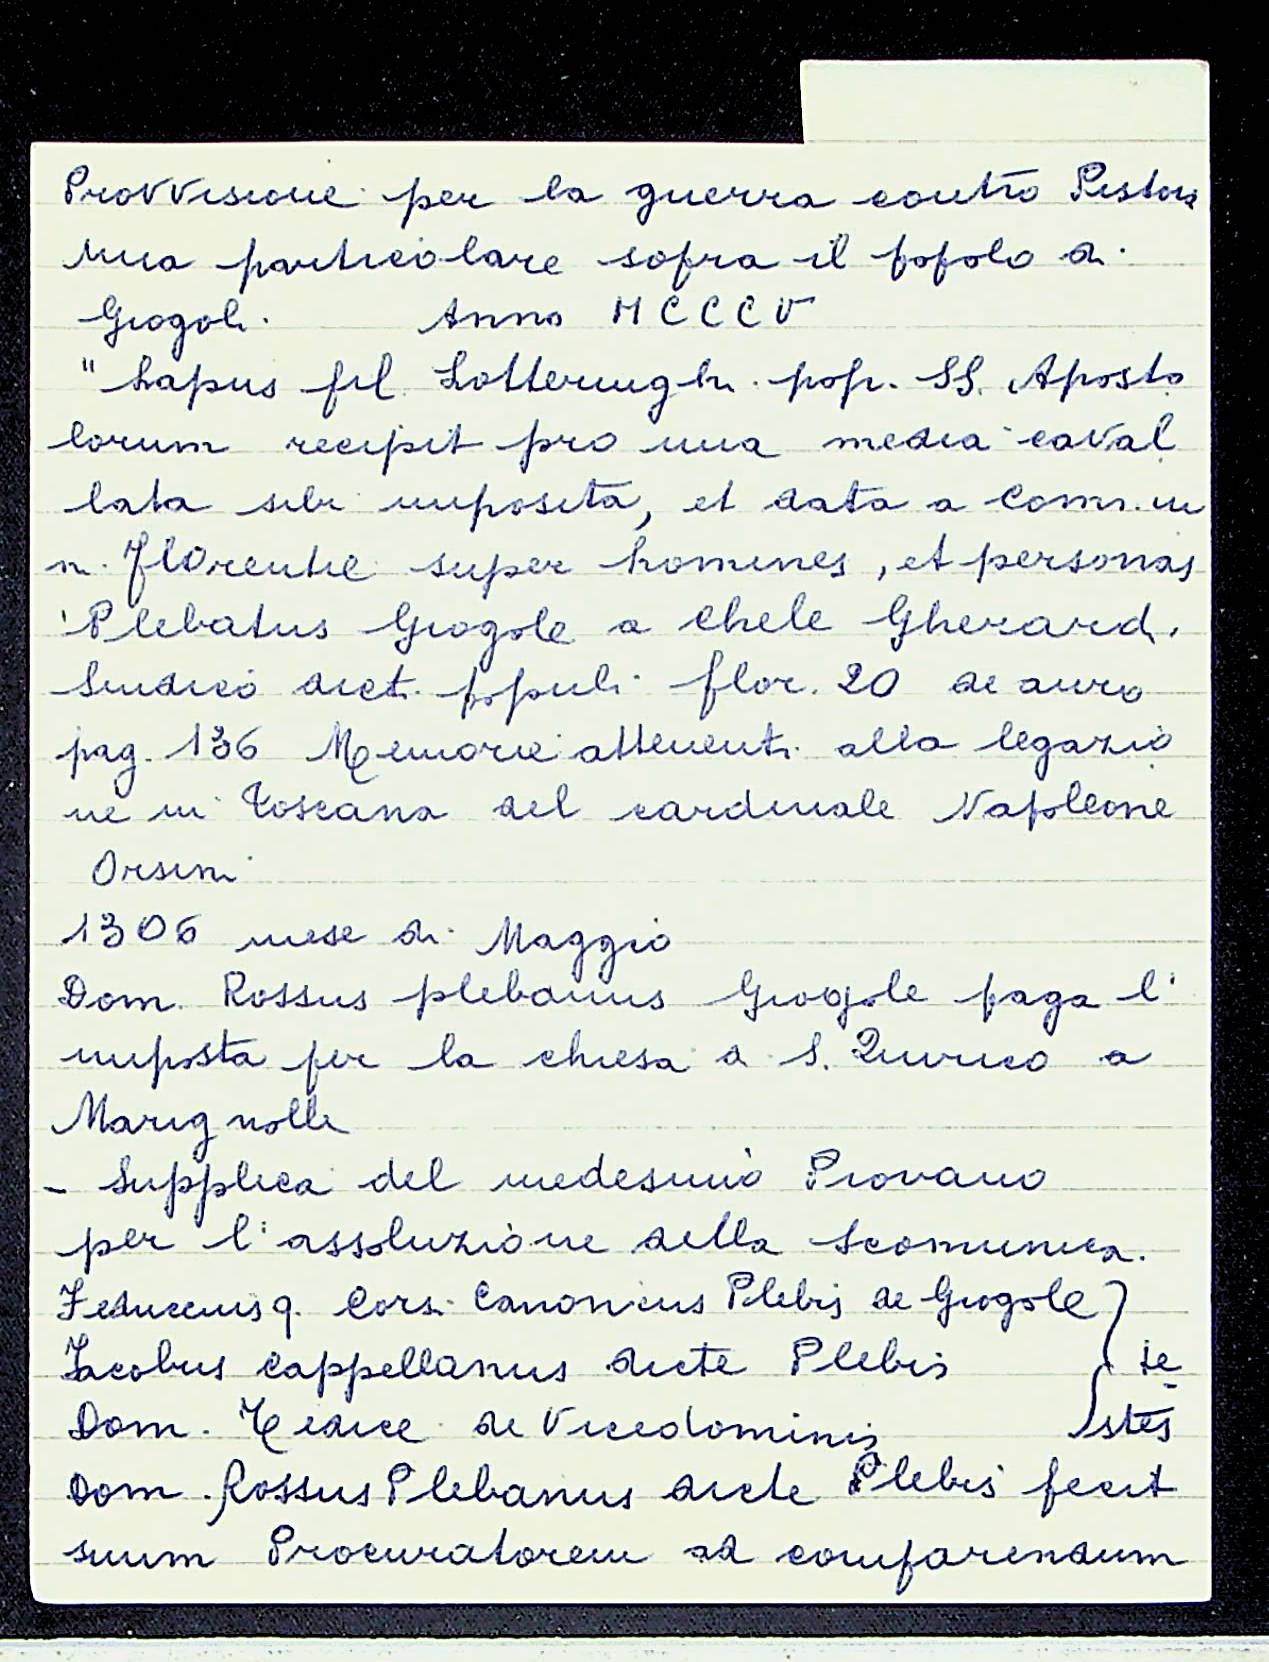 Provvisione per la guerra contro Pistoia
una particolare sopra il popolo di
Giogoli. Anno MCCCV
"Lapus fil. Lotteringhi pop. SS. Aposto
lorum recipit pro una media caval
lata sibi imposita, et data a Comm. in
n. Florentie super homines, et personas
Plebatus Giogole a Chele Gherard.
Sindico dicti populi flor. 20 de auro
pag. 136 Memorie attenenti alla legazio
ne in Toscana del cardinale Napoleone
Orsini
1306 mese di Maggio
Dom. Rossus plebanus Giogole paga l'
imposta per la chiesa di S. Quirico a
Marignolle
- Supplica del medesimo Piovano
per l'assoluzione della scomunica.
Feduccius q. Corsi Canonicus Plebis de Giogole
Iacobus Cappellanus dicte Plebis te
Dom. Tedice de Vicedominis stes
Dom. Rossus Plebanus dicte Plebis fecit
suum Procuratorem ad comparendum